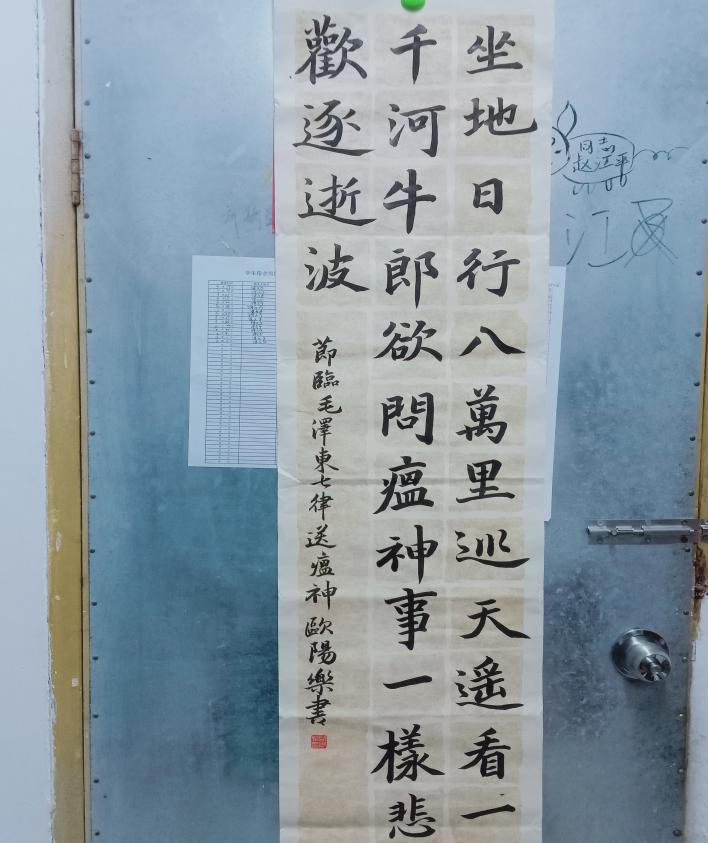 坐地日行八萬里巡天遥看一
千河牛郎欲問瘟神事一樣悲
歡逐逝波
節臨毛澤東七律送瘟神歐陽樂書
同志
赵江平
江